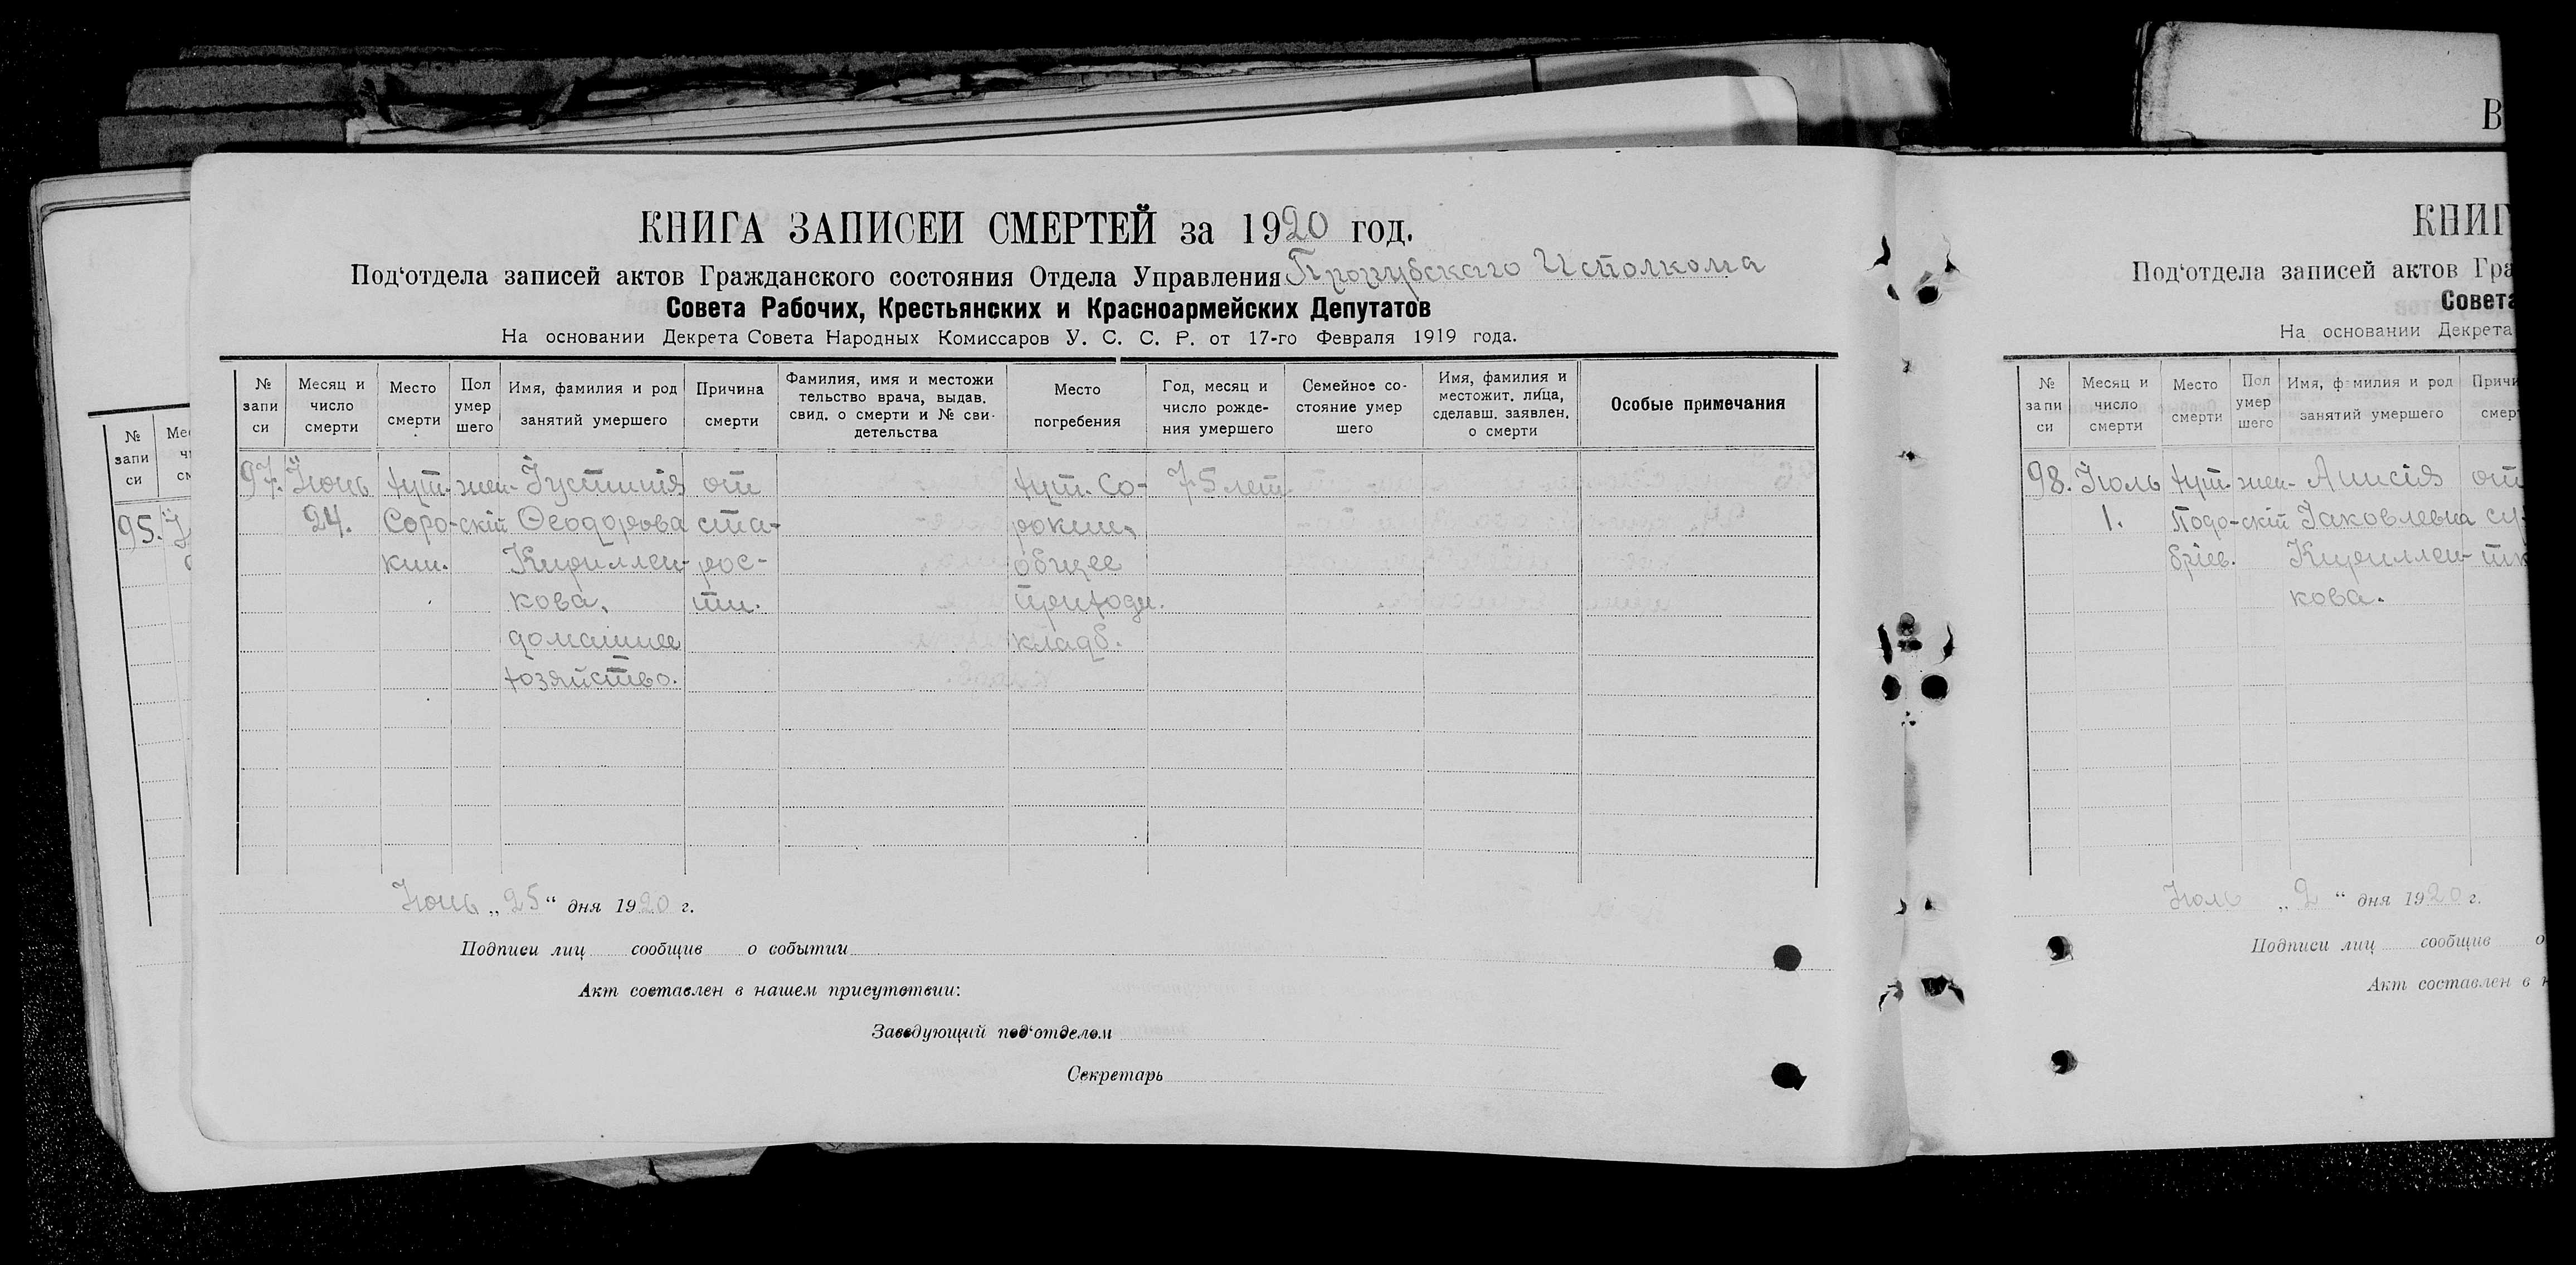 КНИГА ЗАПИСЕЙ СМЕРТЕЙ за 1920 год.
Под'отдела записей актов Гражданского состояния Отдела Управления Прорубского Исполкома
Совета Рабочих, Крестьянских и Красноармейских Депутатов
На основании Декрета Совета Народных Комиссаров У. С. С. Р. от 17-го Февраля 1919 года.
№ запи си
Месяц и число смерти
Место смерти
Пол умер шего
Имя, фамилия и род занятий умершего
Причина смерти
Фамилия, имя и местожи тельство врача, выдав. свид. о смерти и № сви- детельства
Место погребения
Год, месяц и число рожде- ния умершего
Семейное со- стояние умер шего
Имя, фамилия и местожит. лица, сделавш. заявлен. о смерти
Особые примечания
97. Июнь хут. жен- Іустинія от хут. Со- 75 лет.
24. Соро- скій Ѳеодорова ста- рокин,
кин. Кириллен- рос- общее
кова, ти. приходск.
домашнее кладб.
хозяйство.
Июнь „25“ дня 1920 г.
Подписи лиц сообщив о событии
Акт составлен в нашем присутствии:
Заведующий под'отделом
Секретарь
№ запи си
95.
В
КНИГ
Под'отдела записей актов Гра
Совета
На основании Декрета
№ запи си
Месяц и число смерти
Место смерти
Пол умер шего
Имя, фамилия и род занятий умершего
Причи смер
98. Июль хут. жен- Анисія от
1. скій Іаковлевна
Кириллен-
кова.
Июль „2“ дня 1920 г.
Подписи лиц сообщив о
Акт составлен в н